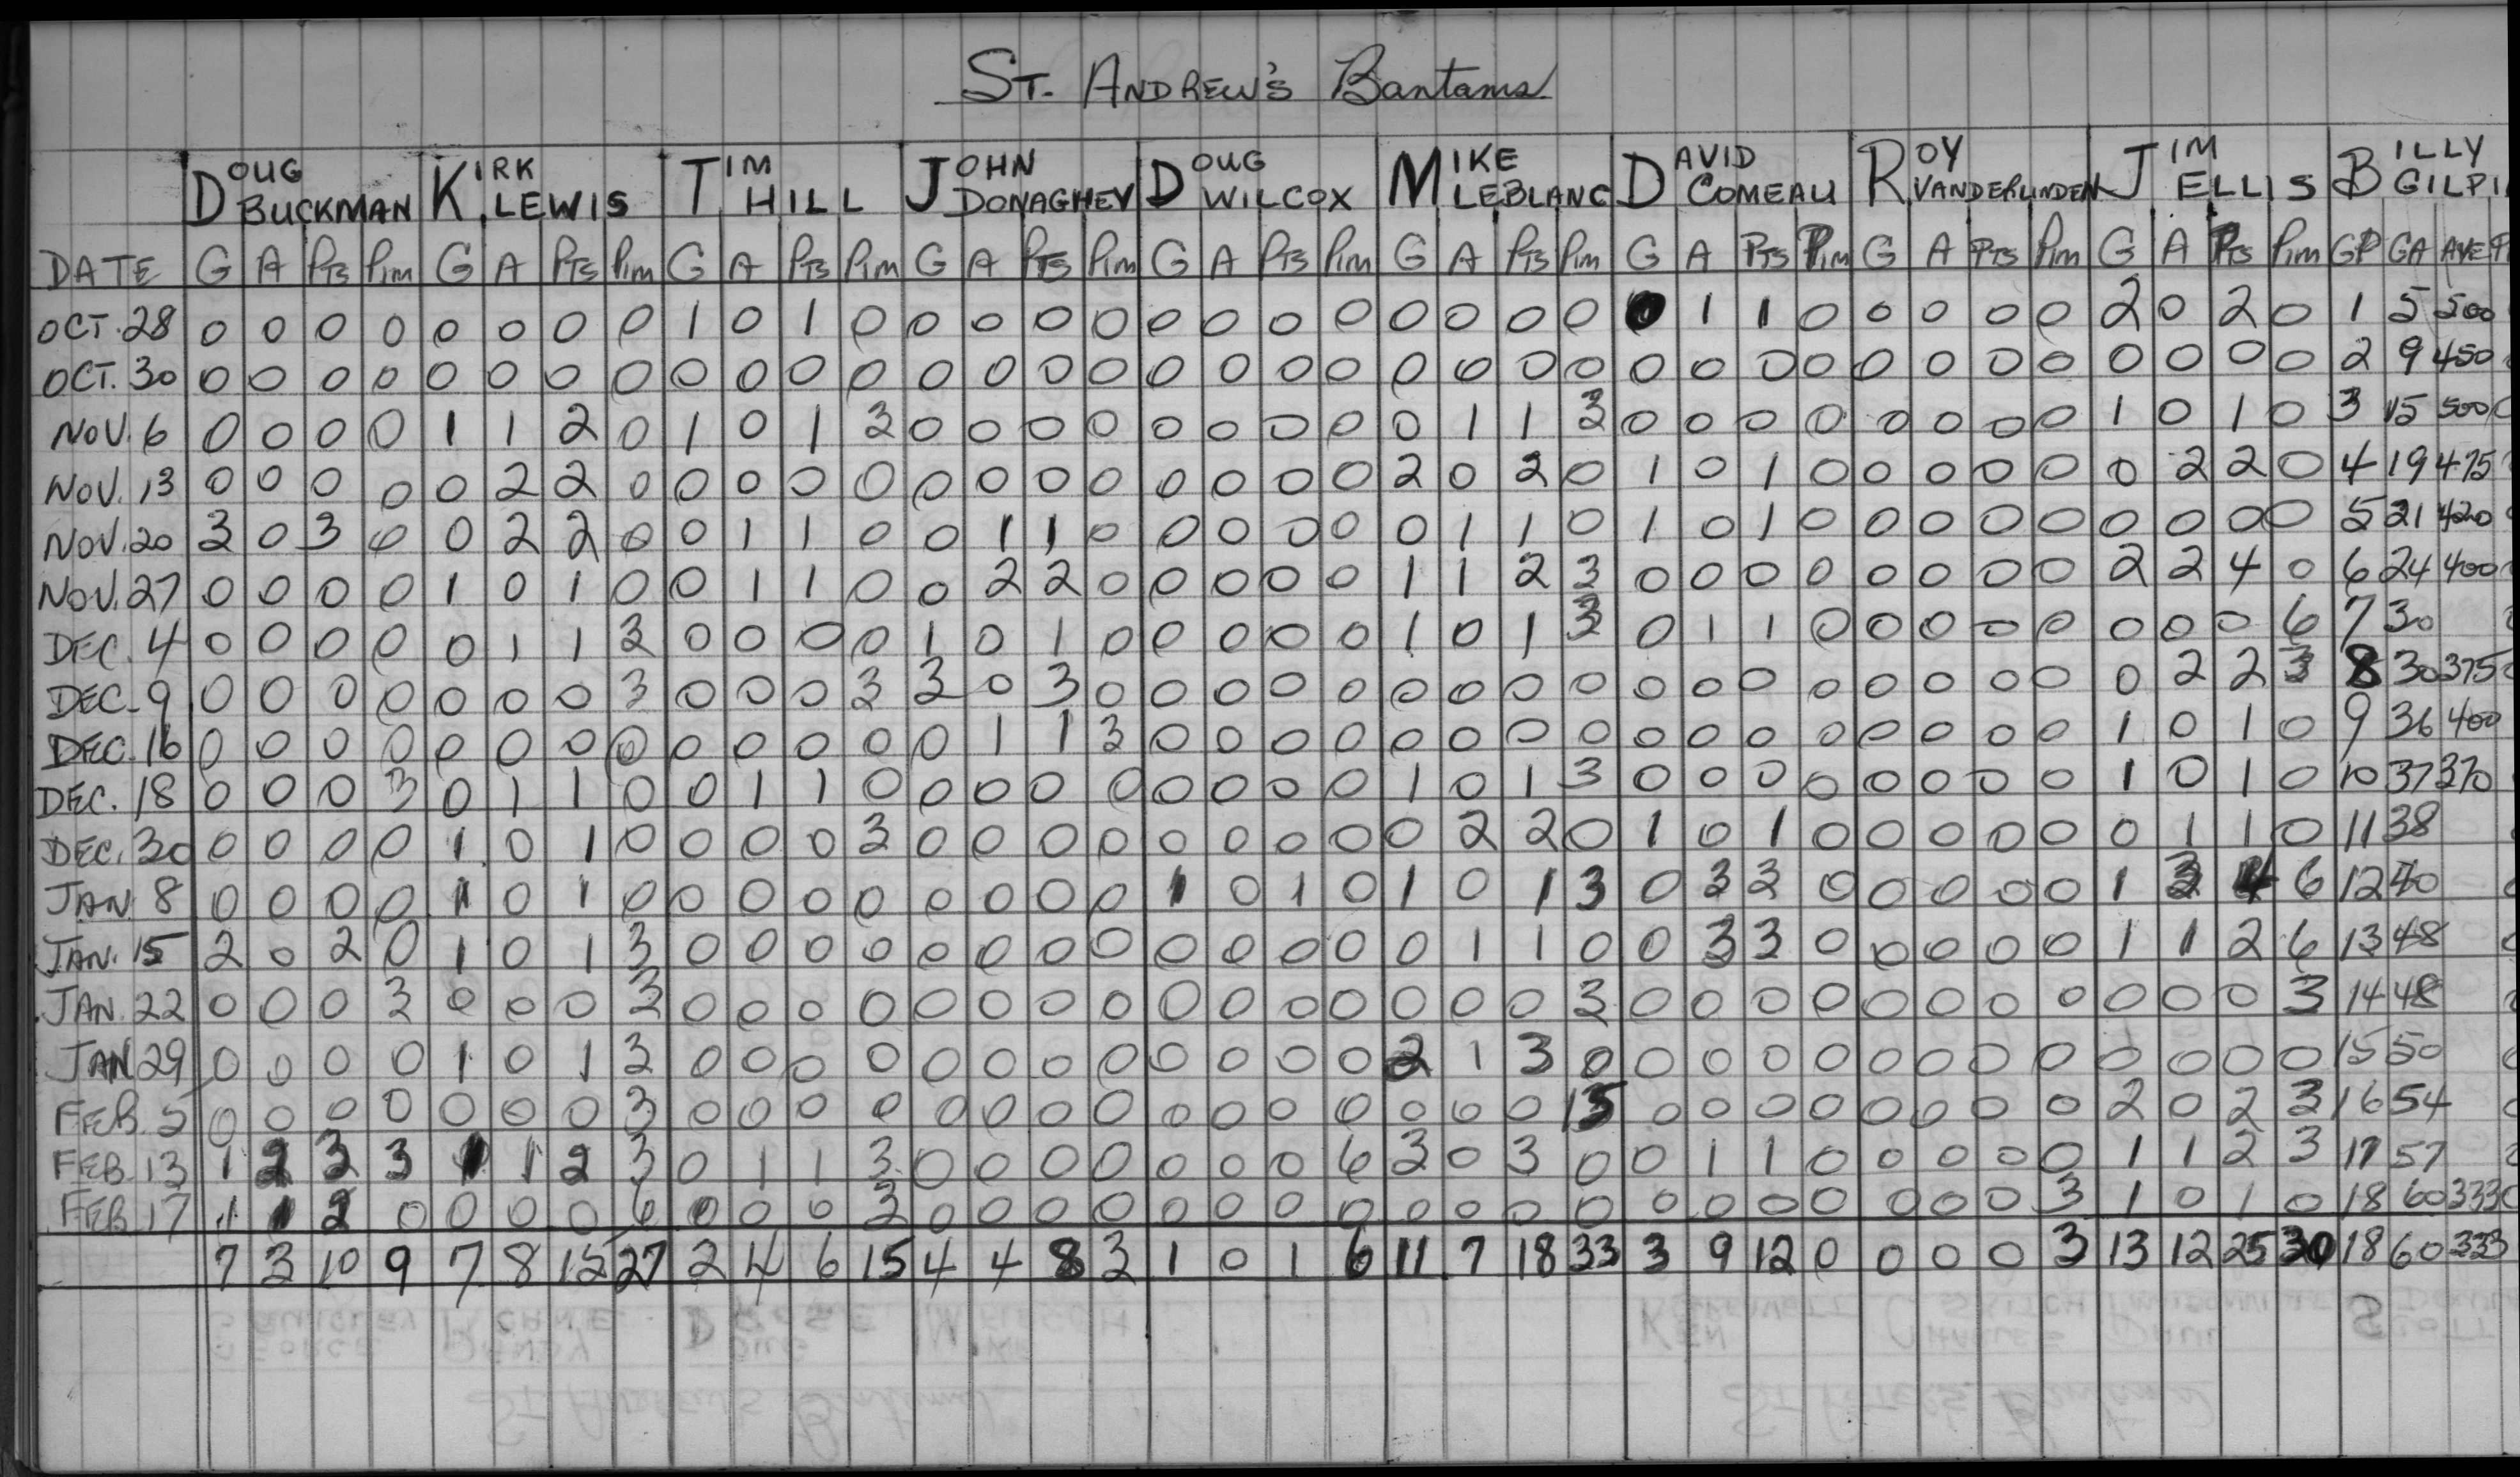 ST. ANDREW'S Bantams
DOUG BUCKMAN KIRK LEWIS TIM HILL JOHN DONAGHEY DOUG WILCOX MIKE LEBLANC DAVID COMEAU ROY VANDERLINDEN JIM ELLIS BILLY GILPI
DATE G A PTS Pim G A PTS Pim G A PTS Pim G A PTS Pim G A PTS Pim G A PTS Pim G A PTS Pim G A PTS Pim G A PTS Pim GP GA AVE
OCT. 28 0 0 0 0 0 0 0 0 1 0 1 0 0 0 0 0 0 0 0 0 0 0 0 0 0 1 1 0 0 0 0 0 2 0 2 0 1 5 500
OCT. 30 0 0 0 0 0 0 0 0 0 0 0 0 0 0 0 0 0 0 0 0 0 0 0 0 0 0 0 0 0 0 0 0 0 0 0 0 2 9 450
NOV. 6 0 0 0 0 1 1 2 0 1 0 1 3 0 0 0 0 0 0 0 0 0 1 1 3 0 0 0 0 0 0 0 0 1 0 1 0 3 15 500
NOV. 13 0 0 0 0 0 2 2 0 0 0 0 0 0 0 0 0 0 0 0 0 2 0 2 0 1 0 1 0 0 0 0 0 0 2 2 0 4 19 475
NOV. 20 3 0 3 0 0 2 2 0 0 1 1 0 0 1 1 0 0 0 0 0 0 1 1 0 1 0 1 0 0 0 0 0 0 0 0 0 5 21 420
NOV. 27 0 0 0 0 1 0 1 0 0 1 1 0 0 2 2 0 0 0 0 0 1 1 2 3 0 0 0 0 0 0 0 0 2 2 4 0 6 24 400
DEC. 4 0 0 0 0 0 1 1 3 0 0 0 0 1 0 1 0 0 0 0 0 1 0 1 3 0 1 1 0 0 0 0 0 0 0 0 6 7 30
DEC. 9 0 0 0 0 0 0 0 3 0 0 0 3 3 0 3 0 0 0 0 0 0 0 0 0 0 0 0 0 0 0 0 0 0 2 2 3 8 30 375
DEC. 16 0 0 0 0 0 0 0 0 0 0 0 0 0 1 1 3 0 0 0 0 0 0 0 0 0 0 0 0 0 0 0 0 1 0 1 0 9 36 400
DEC. 18 0 0 0 3 0 1 1 0 0 1 1 0 0 0 0 0 0 0 0 0 1 0 1 3 0 0 0 0 0 0 0 0 1 0 1 0 10 37 370
DEC. 30 0 0 0 0 1 0 1 0 0 0 0 3 0 0 0 0 0 0 0 0 0 2 2 0 1 0 1 0 0 0 0 0 0 1 1 0 11 38
JAN. 8 0 0 0 0 1 0 1 0 0 0 0 0 0 0 0 0 1 0 1 0 1 0 1 3 0 3 3 0 0 0 0 0 1 3 4 6 12 40
JAN. 15 2 0 2 0 1 0 1 3 0 0 0 0 0 0 0 0 0 0 0 0 0 1 1 0 0 3 3 0 0 0 0 0 1 1 2 6 13 48
JAN. 22 0 0 0 3 0 0 0 3 0 0 0 0 0 0 0 0 0 0 0 0 0 0 0 3 0 0 0 0 0 0 0 0 0 0 0 3 14 48
JAN 29 0 0 0 0 1 0 1 3 0 0 0 0 0 0 0 0 0 0 0 0 2 1 3 0 0 0 0 0 0 0 0 0 0 0 0 0 15 50
FEB. 5 0 0 0 0 0 0 0 3 0 0 0 0 0 0 0 0 0 0 0 0 0 0 0 15 0 0 0 0 0 0 0 0 2 0 2 3 16 54
FEB. 13 1 2 3 3 1 1 2 3 0 1 1 3 0 0 0 0 0 0 0 6 3 0 3 0 0 1 1 0 0 0 0 0 1 1 2 3 17 57
FEB. 17 1 1 2 0 0 0 0 6 0 0 0 3 0 0 0 0 0 0 0 0 0 0 0 0 0 0 0 0 0 0 0 3 1 0 1 0 18 60 333
7 3 10 9 7 8 15 27 2 4 6 15 4 4 8 3 1 0 1 6 11 7 18 33 3 9 12 0 0 0 0 3 13 12 25 30 18 60 333